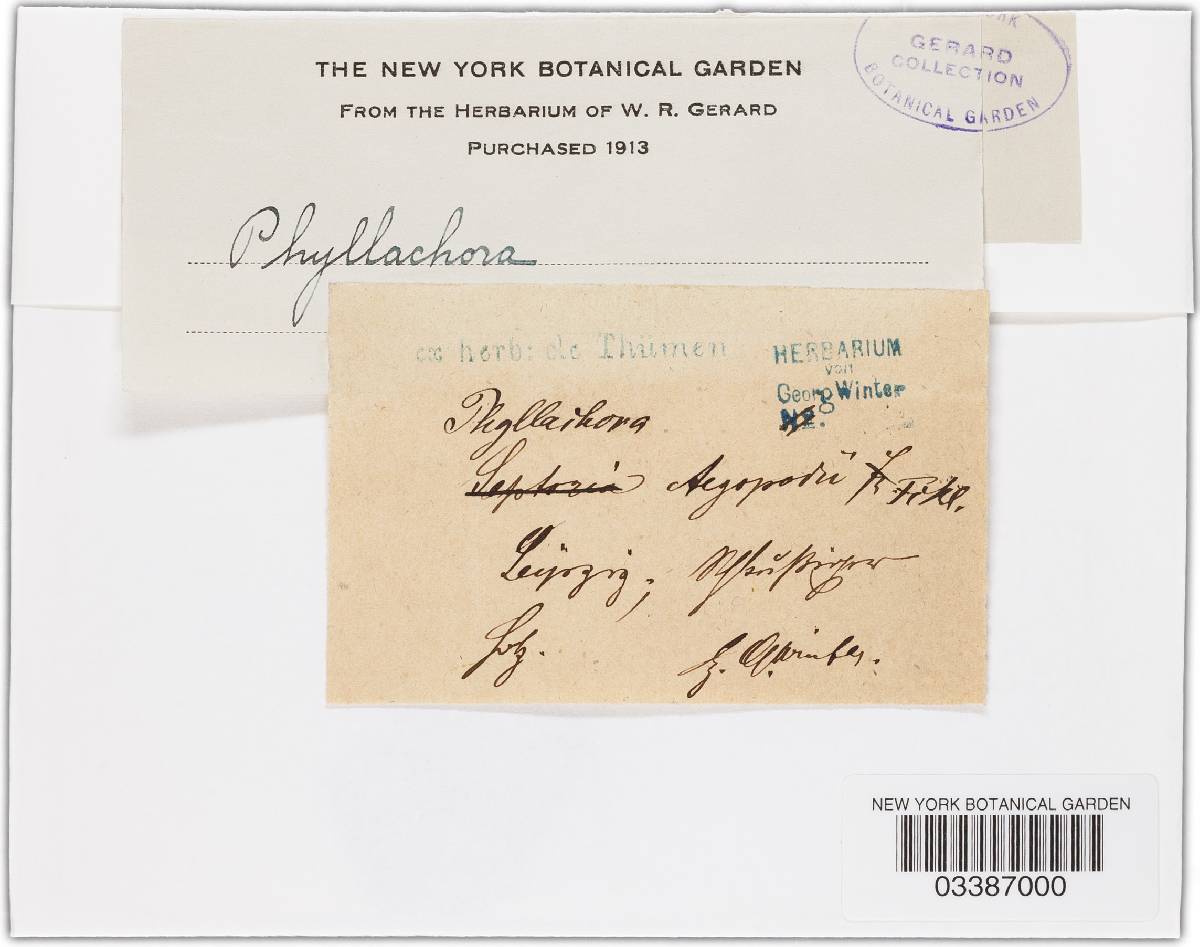 THE NEW YORK BOTANICAL GARDEN
FROM THE HERBARIUM OF W. R. GERARD
PURCHASED 1913
GERARD
COLLECTION
BOTANICAL GARDEN
Phyllachora
ex herb: de Thümen
HERBARIUM
von
Georg Winter
Phyllachora
Septoria Aegopodii Fckl.
Leipzig;
Holz. G. Winter.
NEW YORK BOTANICAL GARDEN
03387000